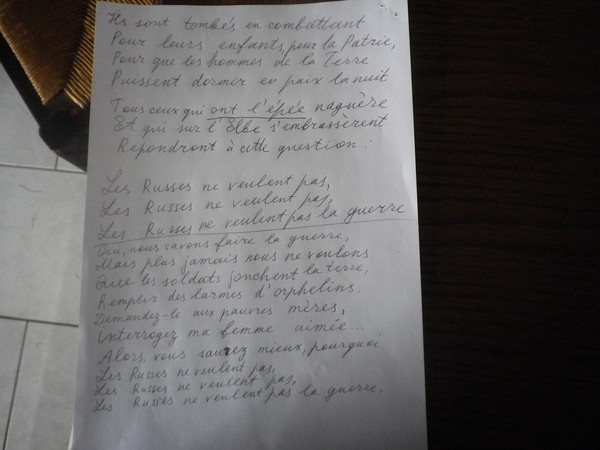 Ils sont tombés en combattant
Pour leurs enfants, pour la Patrie,
Pour que les hommes de la Terre
Puissent dormir en paix la nuit
Tous ceux qui ont l'épée naguère
Et qui sur l'Elbe s'embrassèrent
Repondront à cette question:
Les Russes ne veulent pas,
Les Russes ne veulent pas,
Les Russes ne veulent pas la guerre
Oui, nous savons faire la guerre,
Mais plus jamais nous ne voulons
Que les soldats jonchent la terre,
Remplir des larmes d'orphelins.
Demandez-le aux pauvres mères,
interrogez ma femme aimée...
Alors, vous saurez mieux, pourquoi
Les Russes ne veulent pas,
Les Russes ne veulent pas,
Les Russes ne veulent pas la guerre.